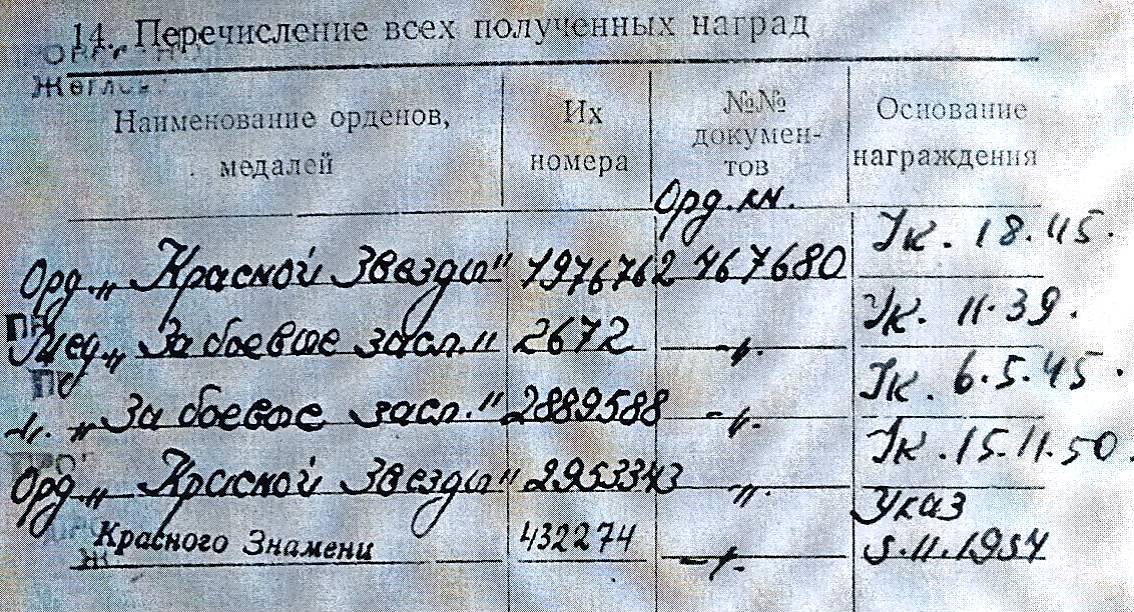 14. Перечисление всех полученных наград
Наименование орденов, медалей Их номера №№ документов Основание награждения
Орд. кн.
Орд. „Красной Звезды" 1976762 467680 Ук. 18.45.
Мед. „За боевые засл." 2672 -„- Ук. 11.39.
-„- „За боевые засл." 2889588 -„- Ук. 6.5.45.
Орд. „Красной Звезды" 2953343 -„- Ук. 15.11.50.
Красного Знамени 432274 -„- Указ 5.11.1954